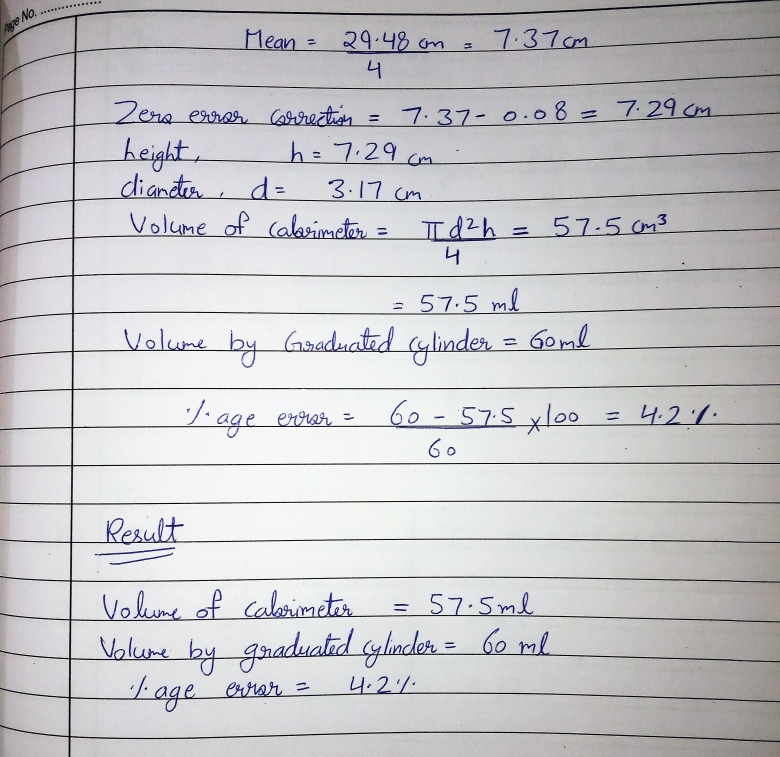 Page No. ................
Mean = 29.48 cm / 4 = 7.37 cm
Zero error correction = 7.37 - 0.08 = 7.29 cm
height, h = 7.29 cm
diameter, d = 3.17 cm
Volume of calorimeter = πd²h / 4 = 57.5 cm³
= 57.5 ml
Volume by Graduated cylinder = 60 ml
%age error = 60 - 57.5 / 60 × 100 = 4.2 %.
Result
Volume of calorimeter = 57.5 ml
Volume by graduated cylinder = 60 ml
%age error = 4.2 %.